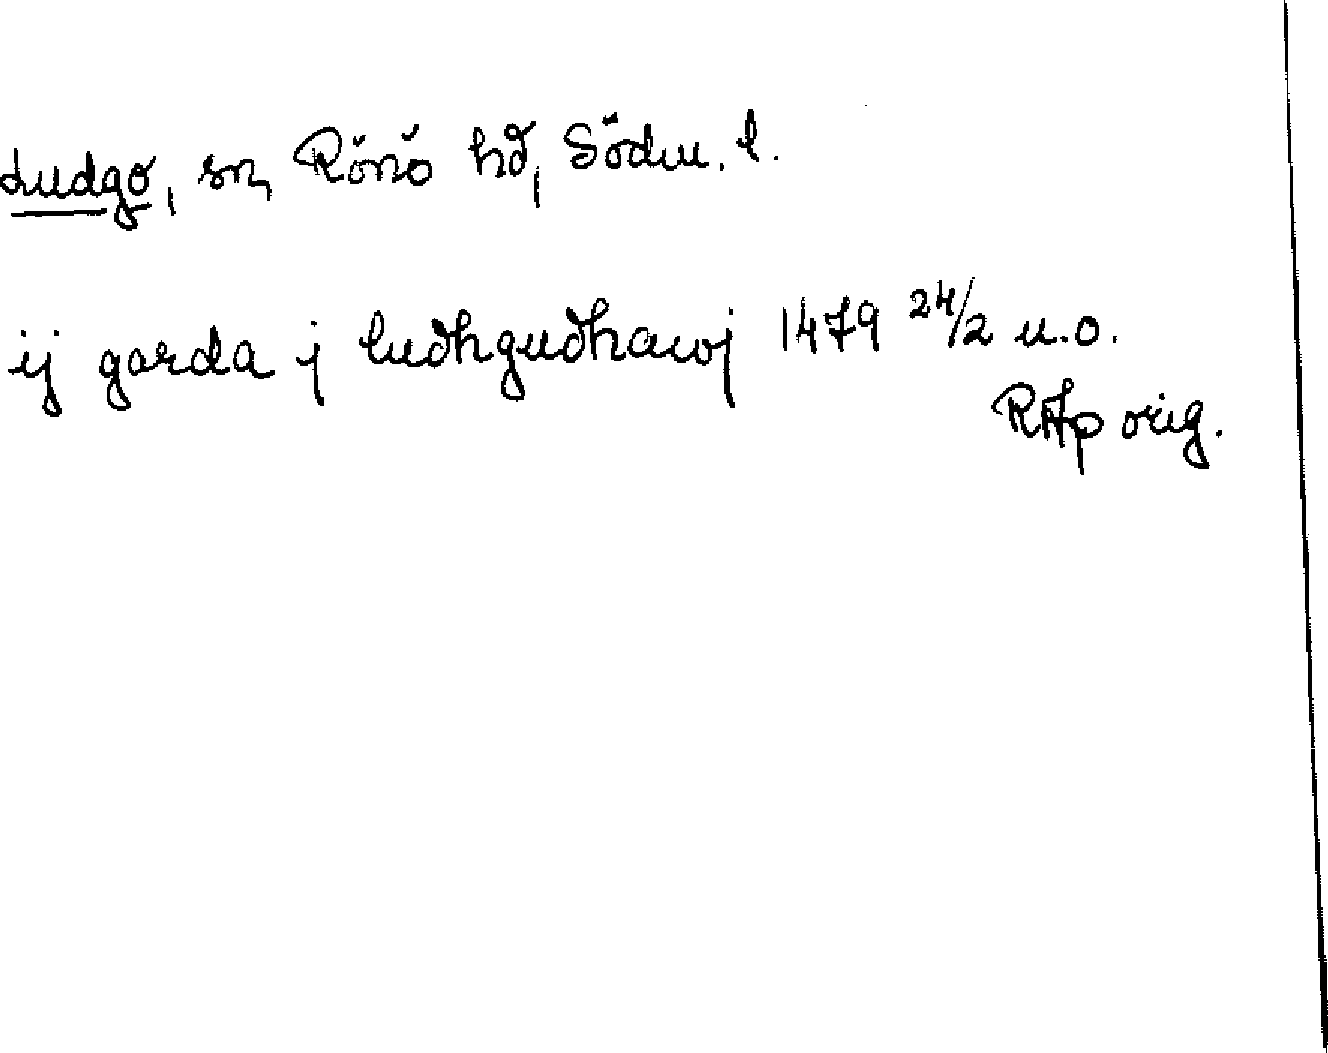 Ludgo, sn, Rönö hd, Södm. l.
ij garda j ludhgudhawj 1479 24/2 u.o.
RAp orig.